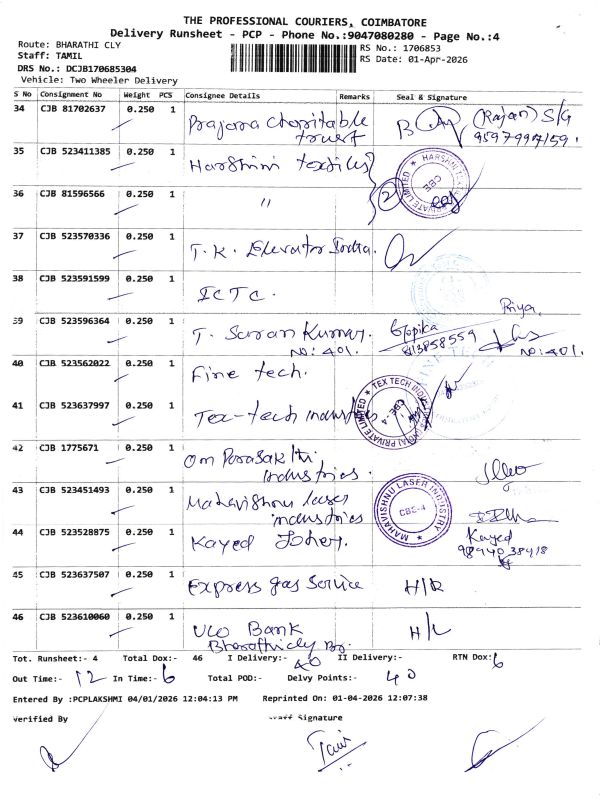 THE PROFESSIONAL COURIERS, COIMBATORE
Delivery Runsheet - PCP - Phone No.:9047080280 - Page No.:4
Route: BHARATHI CLY
RS No.: 1706853
Staff: TAMIL
RS Date: 01-Apr-2026
DRS No.: DCJB170685304
Vehicle: Two Wheeler Delivery
S No Consignment No Weight PCS Consignee Details Remarks Seal & Signature
34 CJB 81702637 0.250 1 Prajona Charitable trust (Rajan) S/G
9597997159.
35 CJB 523411385 0.250 1 Harshini textiles
36 CJB 81596566 0.250 1 " 2
37 CJB 523570336 0.250 1 T.K. Elevator India.
38 CJB 523591599 0.250 1 ICTC.
Priya
39 CJB 523596364 0.250 1 T. Saran Kumar. Gopika
NO: 401. 8113858559 NO: 401.
40 CJB 523562022 0.250 1 Fine tech.
41 CJB 523637997 0.250 1 Tex-tech industries
TEX TECH INDUSTRIES PRIVATE LIMITED
CBE-4
42 CJB 1775671 0.250 1 Om Parasakthi
industries.
43 CJB 523451493 0.250 1 Mahavishnu laser
industries
MAHAVISHNU LASER INDUSTRY
CBE-4
44 CJB 523528875 0.250 1 Kayed Joher. Kayed
9894038418
45 CJB 523637507 0.250 1 Express gas Service H/R
46 CJB 523610060 0.250 1 UCO Bank H/L
Bharathicly
Tot. Runsheet:- 4 Total Dox:- 46 I Delivery:- 40 II Delivery:- RTN Dox: 6
Out Time:- 12 In Time:- 6 Total POD:- Delvy Points:- 40
Entered By :PCPLAKSHMI 04/01/2026 12:04:13 PM Reprinted On: 01-04-2026 12:07:38
Verified By Staff Signature